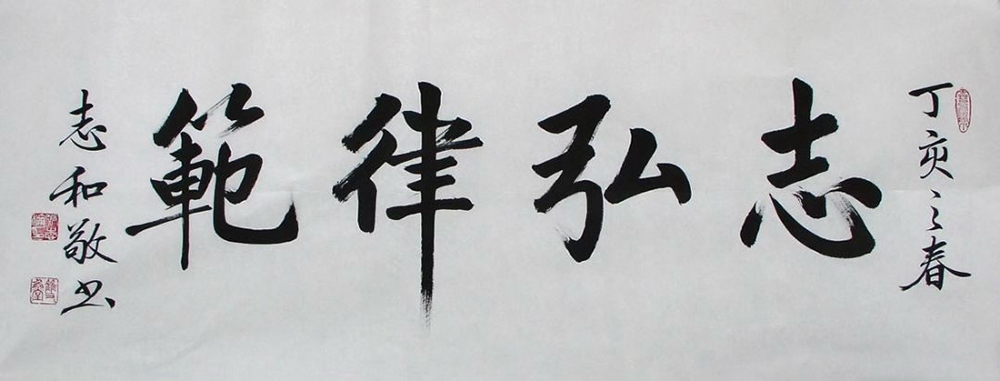 丁亥之春
志弘律範
志和敬书